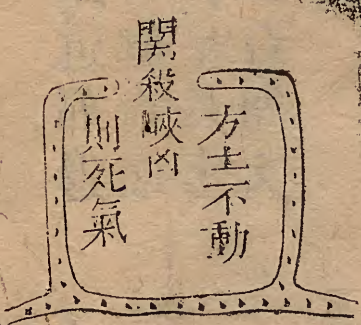 方土不動
関殺峽凶
則死氣